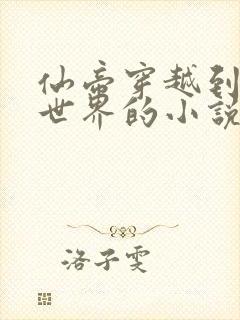 仙帝穿越到
世界的小说
洛子雯